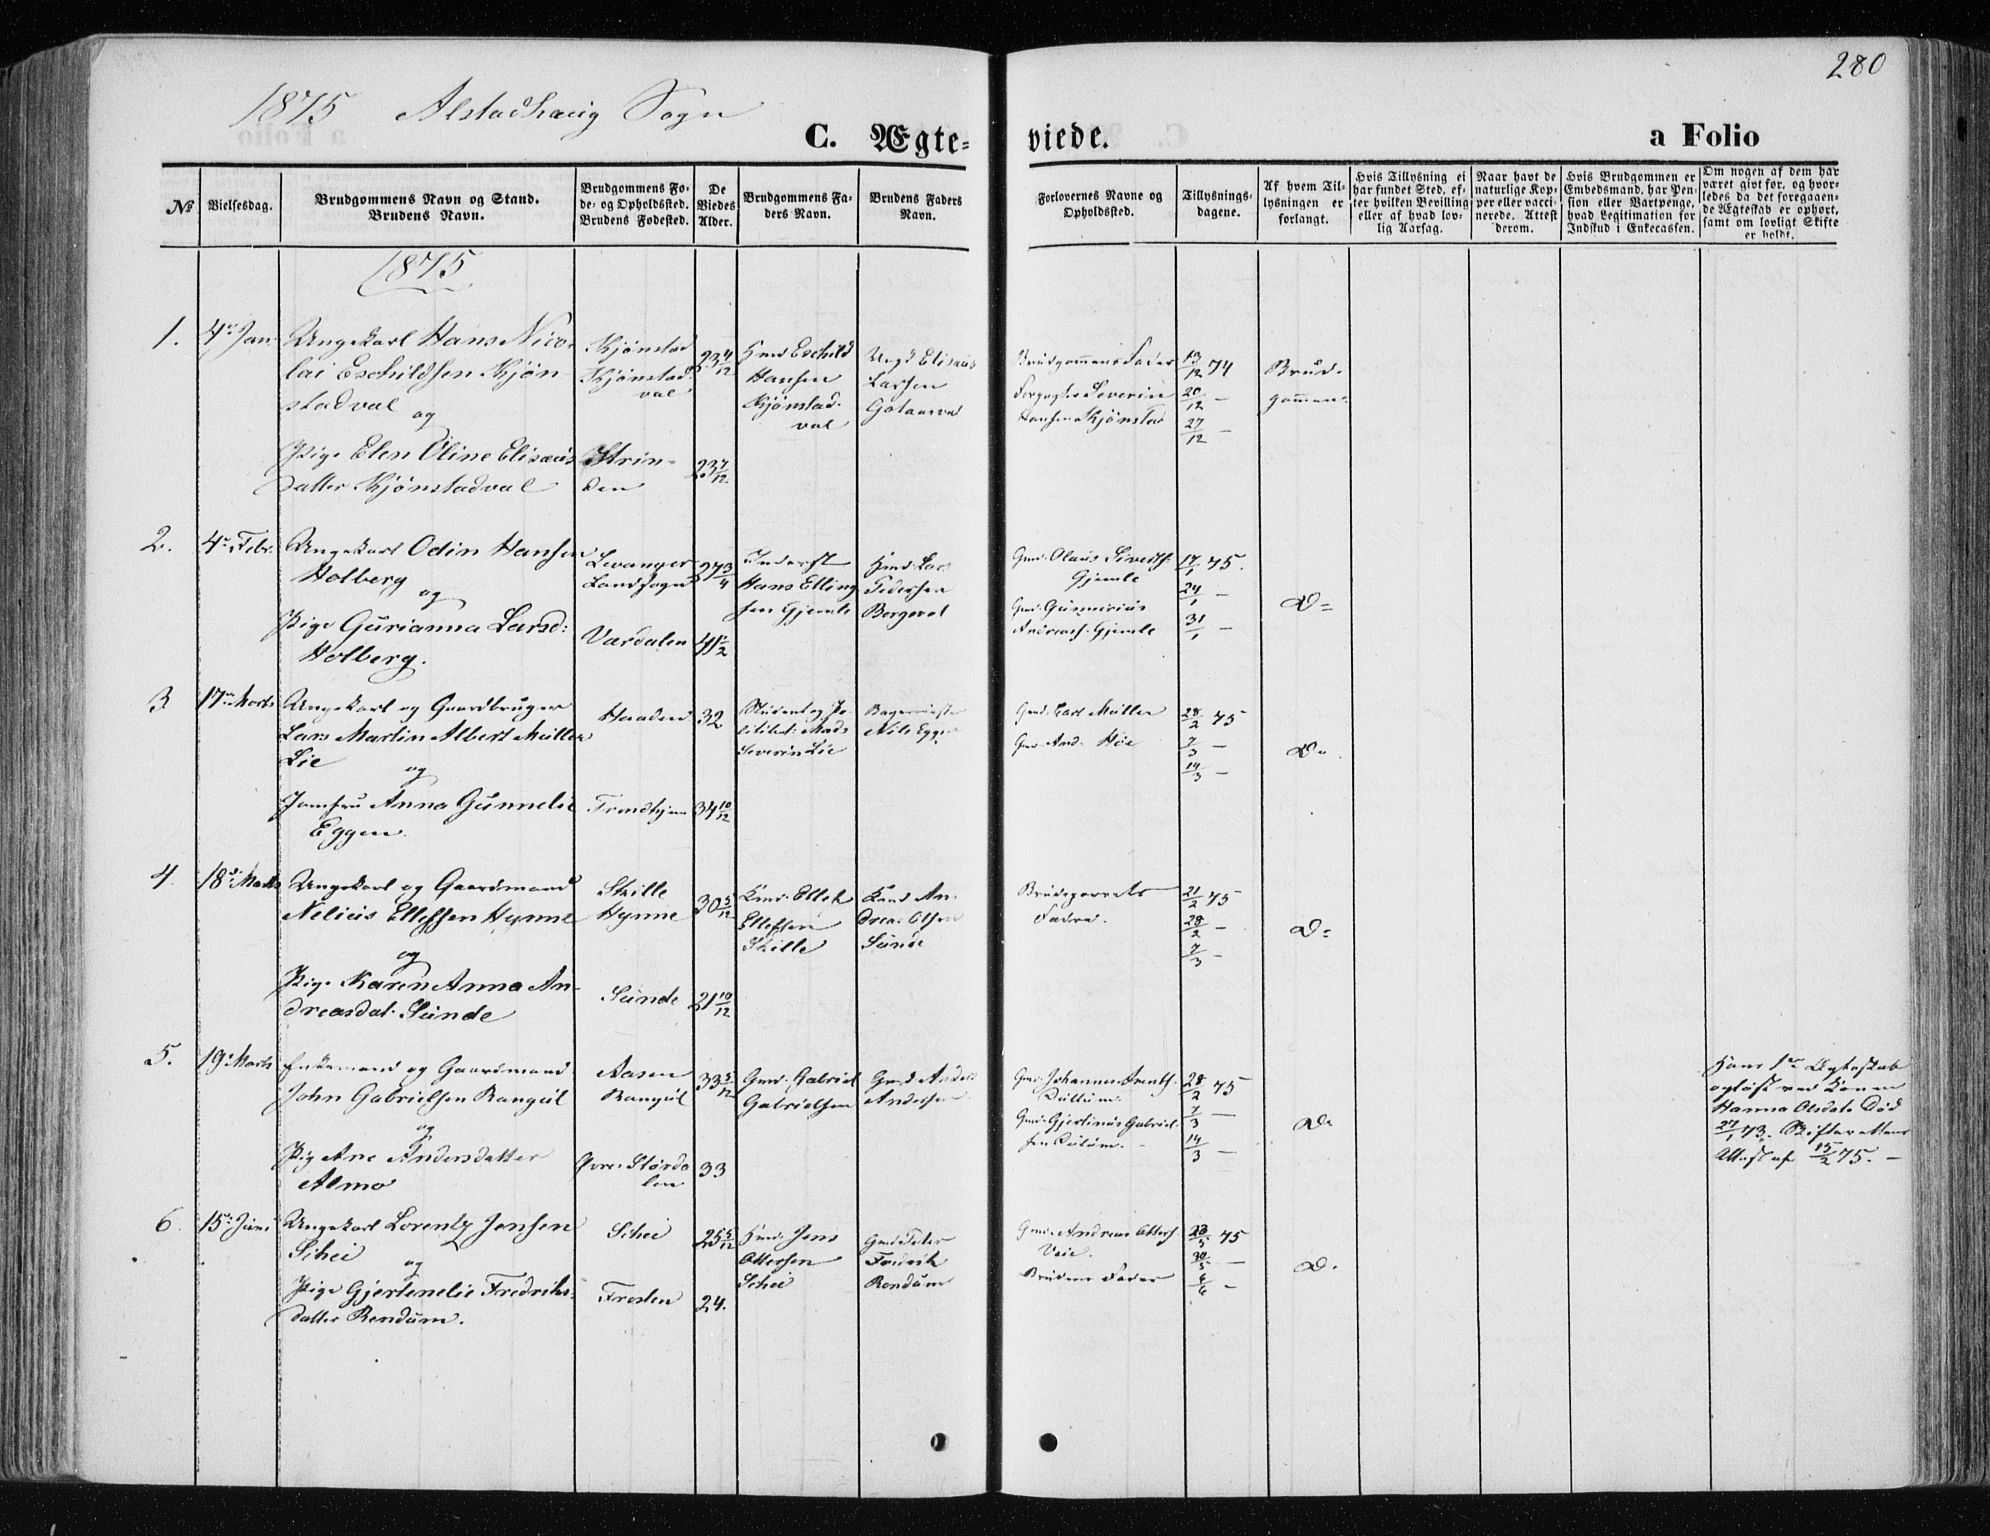 280
1875 Alstadhaug Sogn
C. Ægte- viede. a Folio
No
Vielsesdag.
Brudgommens Navn og Stand.
Brudens Navn.
Brudgommens Fo-
de- og Opholdssted.
Brudens Fødested.
De
Viedes
Alder.
Brudgommens Fa-
ders Navn.
Brudens Faders
Navn.
Forlovernes Navne og
Opholdssted.
Tillysnings-
dagene.
Af hvem Til-
lysningen er
forlangt.
Hvis Tillysning ei
har fundet Sted, ef-
ter hvilken Bevilling
eller af hvad lov-
lig Aarsag.
Naar havt de
naturlige Kop-
per eller vacci-
nerede. Attest
derom.
Hvis Brudgommen er
Embedsmand, har Pen-
sion eller Vartpenge,
hvad Legitimation for
Indskud i Enkecassen.
Om nogen af dem har
været givt før, og hvor-
ledes da det foregaaen-
de Ægteskab er ophørt,
samt om lovligt Skifte
er holdt.
1875
1. 4de Jan.
Ungekarl Hans Nico-
lai Eschildsen Kjøn-
stadval og
Pige Elen Oline Elisæus
datter Kjønstadval
Kjønstad
Kjønstad
val
Strin-
den
23 4/12
23 7/12
Hmd Eschild
Hansen
Kjønstad-
val
Ungk Elisæus
Larsen
Brudgommens Fader
Severin
Hansen Kjønstad
13/12 74
20/12 -
27/12 -
Brud-
gommen.
2. 4de Febr.
Ungekarl Odin Hansen
Holberg
og
Pige Gurianna Larsd:
Holberg.
Levanger
Landsogn
Værdalen
27 3/4
41 1/2
Inderst
Hans Elling
sen Gjemle
Hmd Lars
Pedersen
Bergeval
Gmd. Olaus Sivertsf.
Gjemle
Gmd. Gunnerius
Andreasf. Gjemle
17/1 75.
24/1 -
31/1 -
Do
3 17de Marts
Ungekarl og Gaardbruger
Lars Martin Albert Müller
Lie
og
Jomfru Anna Gunnelie
Eggen.
Haaden
Trondhjem
32
34 10/12
Student og Po-
Mads
Severin Lie
Bagermester
Nils Eggen
Gmd. Carl Müller
Gmd. And. Høe
28/2 75
7/3 -
14/3 -
Do
4. 18de Marts
Ungekarl og Gaardmand
Nelius Ellefsen Hynne
og
Pige Karen Anna An-
dreasdat. Sünde
Skille
Hynne
Sünde
30 5/12
21 10/12
Kmd. Ellef
Ellefsen
Skille
Kmd An-
dreas Olsen
Sünde
Brudeparrets
Fædre.
21/2 75
28/2 -
7/3 -
Do
5. 19de Marts
Enkemand og Gaardmand
John Gabrielsen Rangül
og
Pig Ane Andersdatter
Almo
Aasen
Rangül
Øvre Størda
len
33 5/12
33
Gmd. Gabriel
Gabrielsen
Gmd Anders
Andersen
Gmd. Johannes Arntsf.
Gmd. Gjertinus Gabriel-
sen
28/2 75
7/3 -
14/3 -
Do
Hans 1ste Ægteskab
opløst ved Konen
Hanna Olsdatr Død
27/1 73. Skifterettens
Attest af 15/2 75. -
6. 15de Juni
Ungekarl Lorentz Jensen
Sihei
og
Pige Gjertenelie Fredriks-
datter Rendüm.
Sihei
Frosten
25 5/12
24.
Hmd. Jens
Ottersen
Sihei
Gmd Peter
Fredrik
Rendüm
Gmd. Andreas Ottersf.
Veie.
Brudens Fader
23/5 75
30/5 -
6/6 -
Do